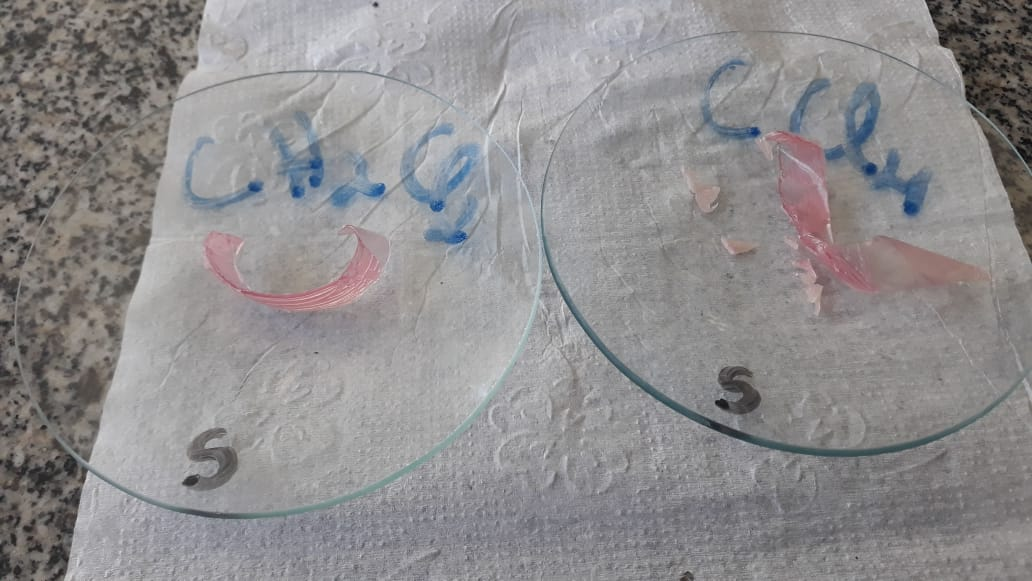 C.H2Cl2
S
C Cl4
S